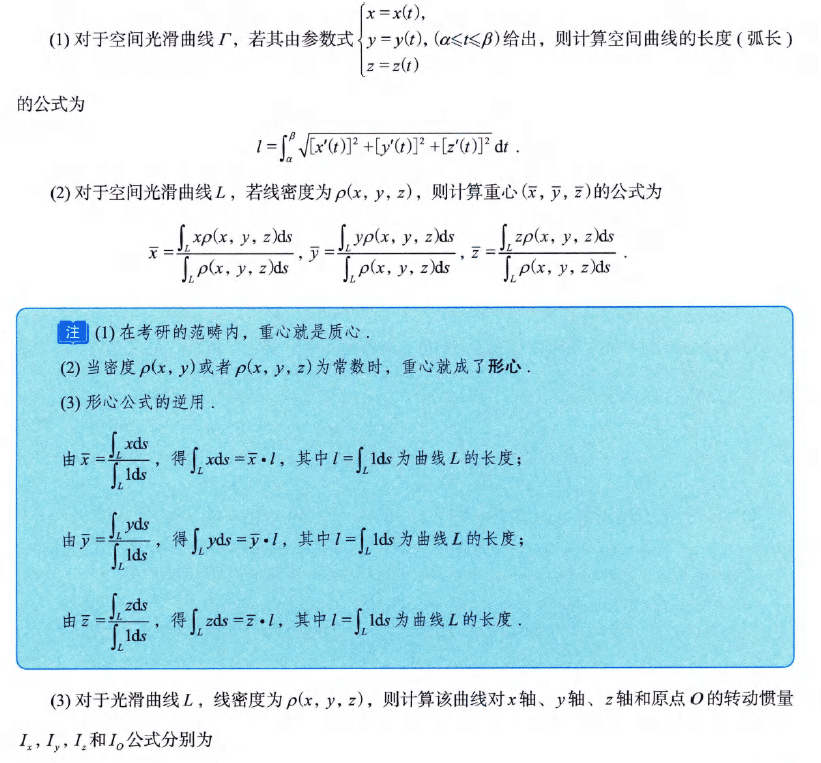 (1) 对于空间光滑曲线 Γ，若其由参数式 {x = x(t), y = y(t), z = z(t) (α≤t≤β)给出，则计算空间曲线的长度（弧长）
的公式为
l = ∫_α^β √([x′(t)]² + [y′(t)]² + [z′(t)]²) dt .
(2) 对于空间光滑曲线 L，若线密度为 ρ(x, y, z)，则计算重心(x̅, y̅, z̅)的公式为
x̅ = ∫_L xρ(x, y, z)ds / ∫_L ρ(x, y, z)ds , y̅ = ∫_L yρ(x, y, z)ds / ∫_L ρ(x, y, z)ds , z̅ = ∫_L zρ(x, y, z)ds / ∫_L ρ(x, y, z)ds .
注 (1) 在考研的范畴内，重心就是质心 .
(2) 当密度 ρ(x, y)或者 ρ(x, y, z)为常数时，重心就成了形心 .
(3) 形心公式的逆用 .
由 x̅ = ∫_L xds / ∫_L 1ds ，得 ∫_L xds = x̅ • l，其中 l = ∫_L 1ds 为曲线 L 的长度；
由 y̅ = ∫_L yds / ∫_L 1ds ，得 ∫_L yds = y̅ • l，其中 l = ∫_L 1ds 为曲线 L 的长度；
由 z̅ = ∫_L zds / ∫_L 1ds ，得 ∫_L zds = z̅ • l，其中 l = ∫_L 1ds 为曲线 L 的长度 .
(3) 对于光滑曲线 L，线密度为 ρ(x, y, z)，则计算该曲线对 x 轴、y 轴、z 轴和原点 O 的转动惯量
I_x , I_y , I_z 和 I_O 公式分别为